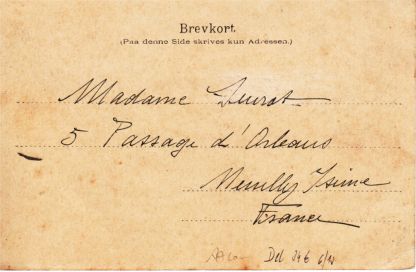 Brevkort.
(Paa denne Side skrives kun Adressen.)
Madame
5 Passage d'Orleans
Neuilly s/Seine
France
Del 346